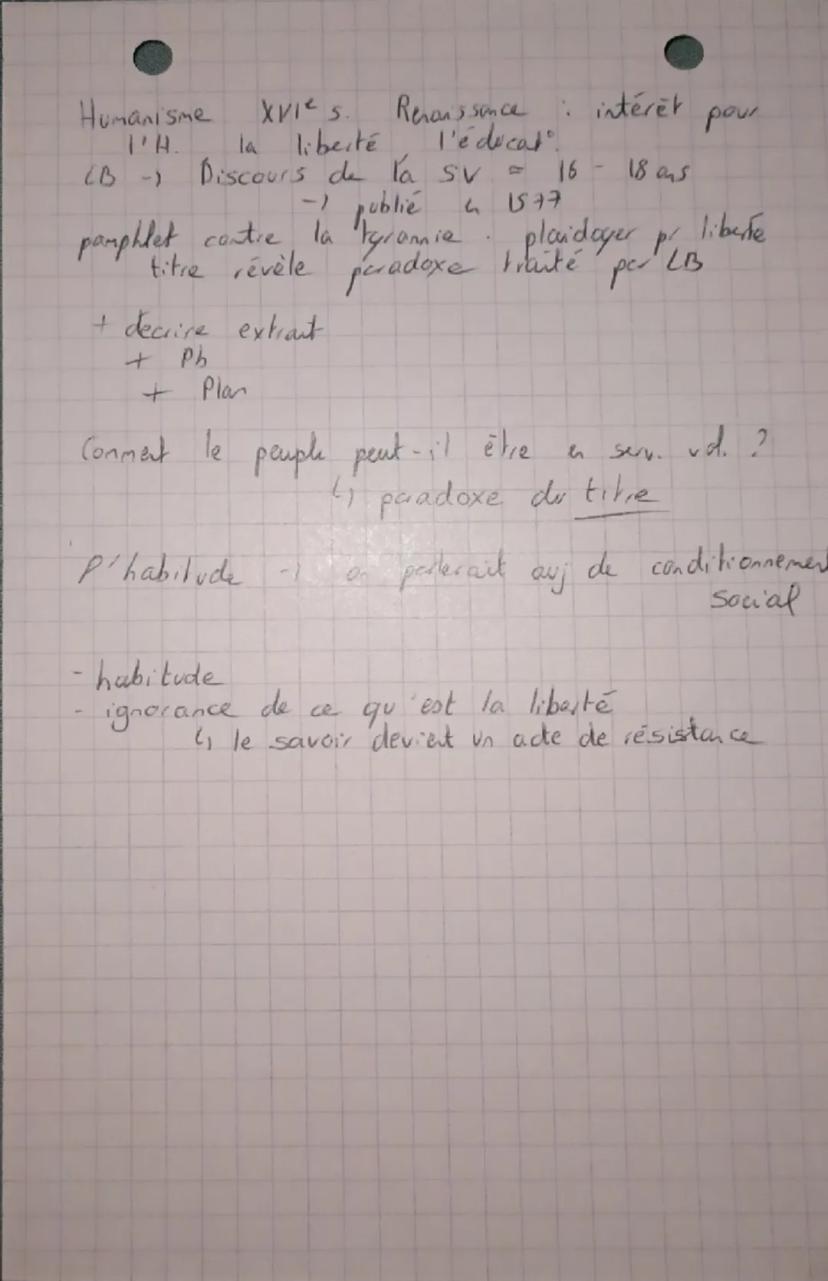 Humanisme XVIe s. Renaissance : intérêt pour
l'H. la liberté l'éducat°.
LB -> Discours de la SV = 16 - 18 ans
-> publié en 1577
pamphlet contre la tyrannie. plaidoyer pr liberté
titre révèle paradoxe traité par LB
+ decrire extrait
+ Pb
+ Plan
Comment le peuple peut-il être en serv. vol. ?
↳ paradoxe du titre
l'habitude -> on parlerait auj de conditionnement
social
- habitude
- ignorance de ce qu'est la liberté
↳ le savoir devient un acte de résistance